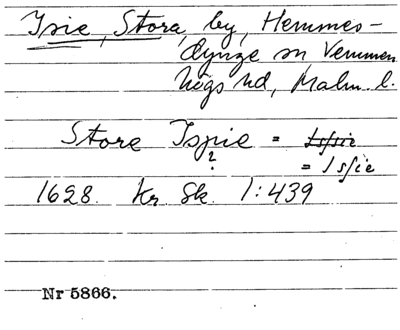 Ysie, Stora, by, Hemmes-
dynge sn Vemmen
högs hd, Malm. l.
Store Ispie =
?
= Isſie
1628. Kr Sk. 1:439
Nr 5866.